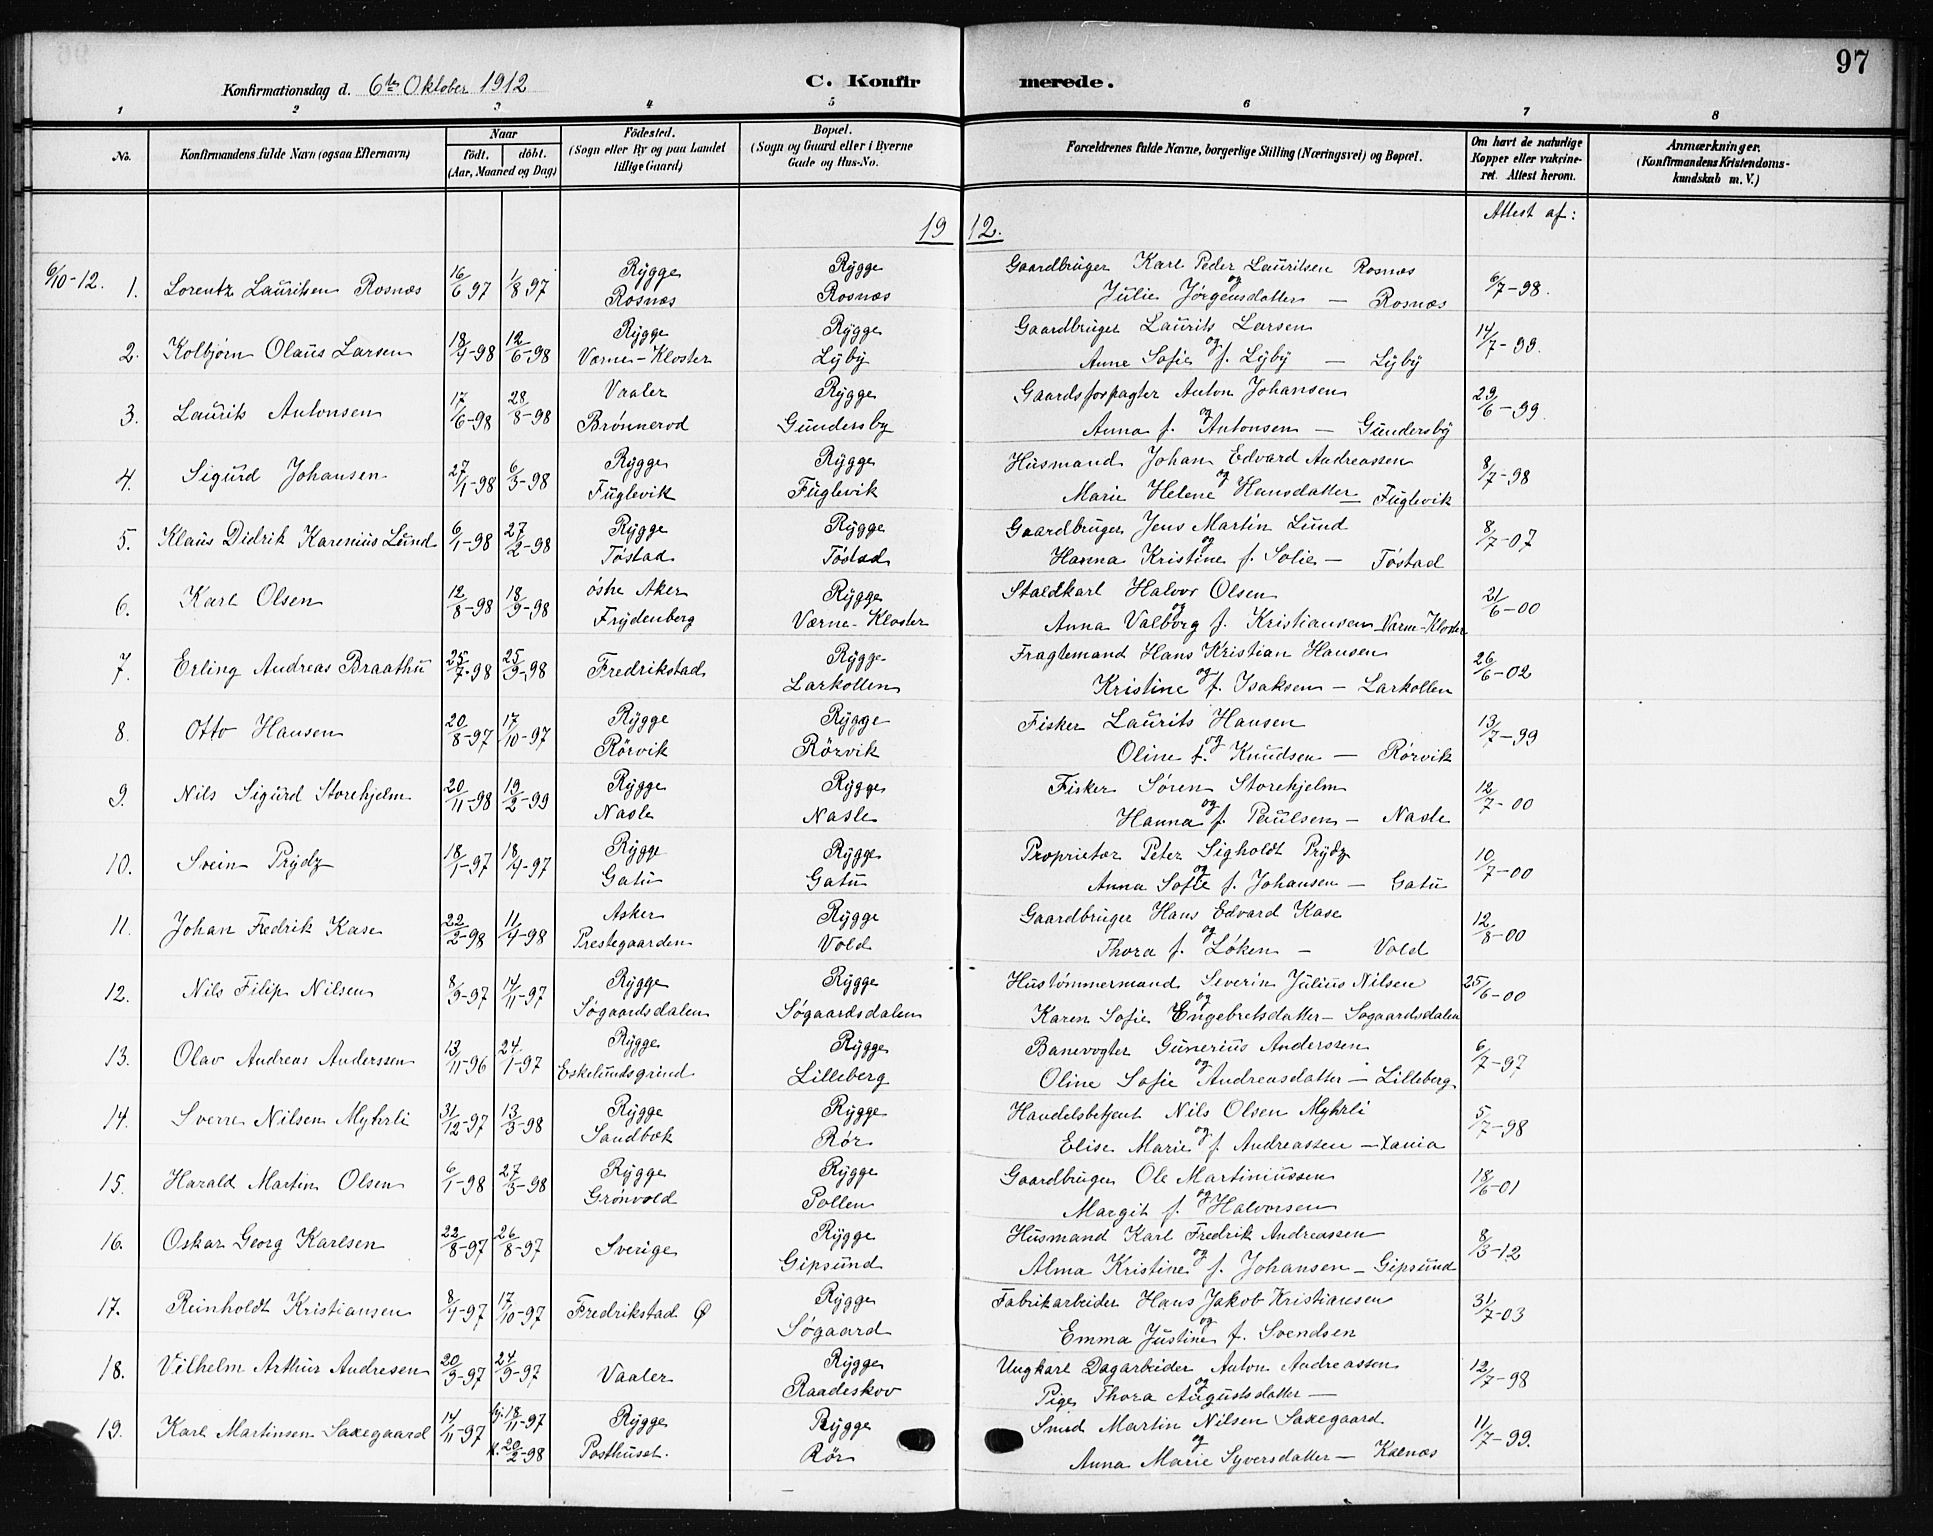 97
Konfirmationsdag d. 6te Oktober 1912
C. Konfirmerede.
1 2 3 4 5 6 7 8
No.
Konfirmandens fulde Navn (ogsaa Efternavn)
Naar
födt. döbt.
(Aar, Maaned og Dag)
Födested.
(Sogn eller By og paa Landet
tillige Gaard)
Bopæl.
(Sogn og Gaard eller i Byerne
Gade og Hus-No.
Forældrenes fulde Navne, borgerlige Stilling (Næringsvei) og Bopæl.
Om havt de naturlige
Kopper eller vakcine-
ret. Attest herom.
Anmærkninger.
(Konfirmandens Kristendoms-
kundskab m. V.)
Attest af:
1912.
6/10-12. 1. Lorentz Lauritsen Rosnæs 16/6 97 1/8 97 Rygge Rygge Gaardbruger Karl Peder Lauritsen Rosnæs 6/7-98.
Rosnæs Rosnæs og Julie Jørgensdatter — Rosnæs
2. Kolbjørn Olaus Larsen 18/4-98 12/6-98 Rygge Rygge Gaardbruger Laurits Larsen 14/7-99.
Værne-Kloster Lyby og Anne Sofie f. Lyby — Lyby
3. Laurits Antonsen 17/6-98 28/8-98 Vaaler Rygge Gaardsforpagter Anton Johansen 29/6-99.
Brønnerød Gundersby og Anna f. Antonsen — Gundersby
4. Sigurd Johansen 27/1-98 6/3-98 Rygge Rygge Husmand Johan Edvard Andreassen 8/7-98
Fuglevik Fuglevik og Marie Helene Hansdatter — Fuglevik
5. Klaus Didrik Karenius Lund 6/1-98 27/2-98 Rygge Rygge Gaardbruger Jens Martin Lund 8/7-07
Tøstad Tøstad og Hanna Kristine f. Solie — Tøstad
6. Karl Olsen 12/8-98 18/9-98 østre Aker Rygge Staldkarl Halvor Olsen 21/6-00
Frydenberg Værne-Kloster og Anna Valborg f. Kristiansen Værne-Kloster
7. Erling Andreas Braathu 25/7-98 25/9-98 Fredrikstad Rygge Fragtemand Hans Kristian Hansen 26/6-02
Larkollen og Kristine f. Isaksen — Larkollen
8. Otto Hansen 20/8-97 17/10-97 Rygge Rygge Fisker Laurits Hansen 13/7-99
Rörvik Rörvik og Oline f. Knudsen — Rörvik
9. Nils Sigurd Storehjelm 20/11-98 19/2-99 Rygge Rygge Fisker Søren Storehjelm 12/7-00
Nasle Nasle og Hanna f. Paulsen — Nasle
10. Svein Prydz 18/1-97 18/4-97 Rygge Rygge Proprietær Peter Sigholdt Prydz 10/7-00
Gatu Gatu og Anna Sofie f. Johansen — Gatu
11. Johan Fredrik Kase 22/2-98 11/4-98 Asker Rygge Gaardbruger Hans Edvard Kase 12/8-00
Prestegaarden Vold og Thora f. Løken — Vold
12. Nils Filip Nilsen 8/9-97 14/11-97 Rygge Rygge Hustømmermand Severin Julius Nilsen 25/6-00
Søgaardsdalen Søgaardsdalen og Karen Sofie Engebretsdatter — Søgaardsdalen
13. Olav Andreas Anderssen 13/11-96 24/1-97 Rygge Rygge Banevogter Gunerius Anderssen 6/7-97
Eskelundsgrind Lilleberg og Oline Sofie Andreasdatter — Lilleberg
14. Sverre Nilsen Myhrli 31/12-97 13/3-98 Rygge Rygge Handelsbetjent Nils Olsen Myhrli 5/7-98
Sandbæk Rör og Elise Marie f. Andreassen — Xania
15. Harald Martin Olsen 6/1-98 27/3-98 Rygge Rygge Gaardbruger Ole Martiniussen 18/6-01
Grönvold Pollen og Margit f. Halvorsen
16. Oskar Georg Karlsen 22/8-97 26/8-97 Sverige Rygge Husmand Karl Fredrik Andreassen 8/3-12
Gipsund og Alma Kristine f. Johansen — Gipsund
17. Reinholdt Kristiansen 8/4-97 17/10-97 Fredrikstad Ø Rygge Fabrikarbeider Hans Jakob Kristiansen 31/7-03
Søgaard og Emma Justine f. Svendsen
18. Vilhelm Arthur Andresen 20/3-97 24/9-97 Vaaler Rygge Ungkarl Dagarbeider Anton Andreassen 12/7-98
Raadeskov og Pige Thora Augustsdatter —
19. Karl Martinsen Saxegaard 14/11-97 hj. 18/11-97 Rygge Rygge Smed Martin Nilsen Saxegaard 11/7-99.
k. 20/2-98 Posthuset. Rör og Anna Marie Syversdatter — Kalnæs